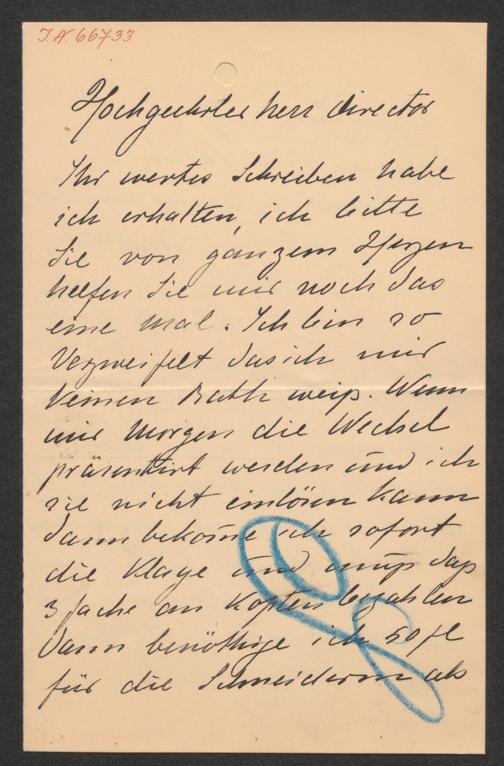 J.N. 66733
Hochgeehrter Herr Director
Ihr wertes Schreiben habe
ich erhalten, ich bitte
Sie von ganzem Herzen
helfen Sie mir noch das
eine Mal. Ich bin so
Verzweifelt das ich mir
keinen Rath weiß. Wenn
mir Morgen die Wechsel
präsentirt werden und ich
sie nicht einlösen kann
dann bekom̅e ich sofort
die Klage und muß das
3 fache an Kosten bezahlen
dann benöthige ich 50 fl
für die Schneiderin als